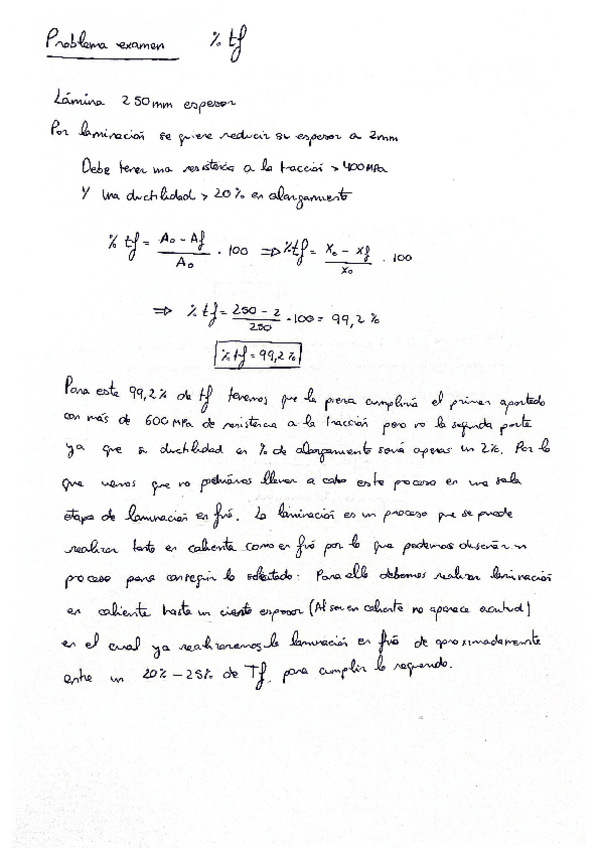 Problema examen % tf
Lámina 250mm espesor
Por laminación se quiere reducir su espesor a 2mm
Debe tener una resistencia a la tracción > 400MPa
Y una ductilidad > 20% en alargamiento
% tf = A₀ - Af / A₀ · 100 ⇒ % tf = X₀ - Xf / X₀ · 100
⇒ % tf = 250 - 2 / 250 · 100 = 99,2 %
% tf = 99,2 %
Para este 99,2% de tf tenemos que la pieza cumpliría el primer apartado
con más de 600MPa de resistencia a la tracción pero no la segunda parte
ya que su ductilidad en % de alargamiento sería apenas un 2%. Por lo
que vemos que no podríamos llevar a cabo este proceso en una sola
etapa de laminación en frío. La laminación es un proceso que se puede
realizar tanto en caliente como en frío por lo que podemos diseñar un
proceso para conseguir lo solicitado: Para ello debemos realizar laminación
en caliente hasta un cierto espesor (Al ser en caliente no aparece acritud)
en el cual ya realizaremos la laminación en frío de aproximadamente
entre un 20% - 25% de Tf, para cumplir lo requerido.